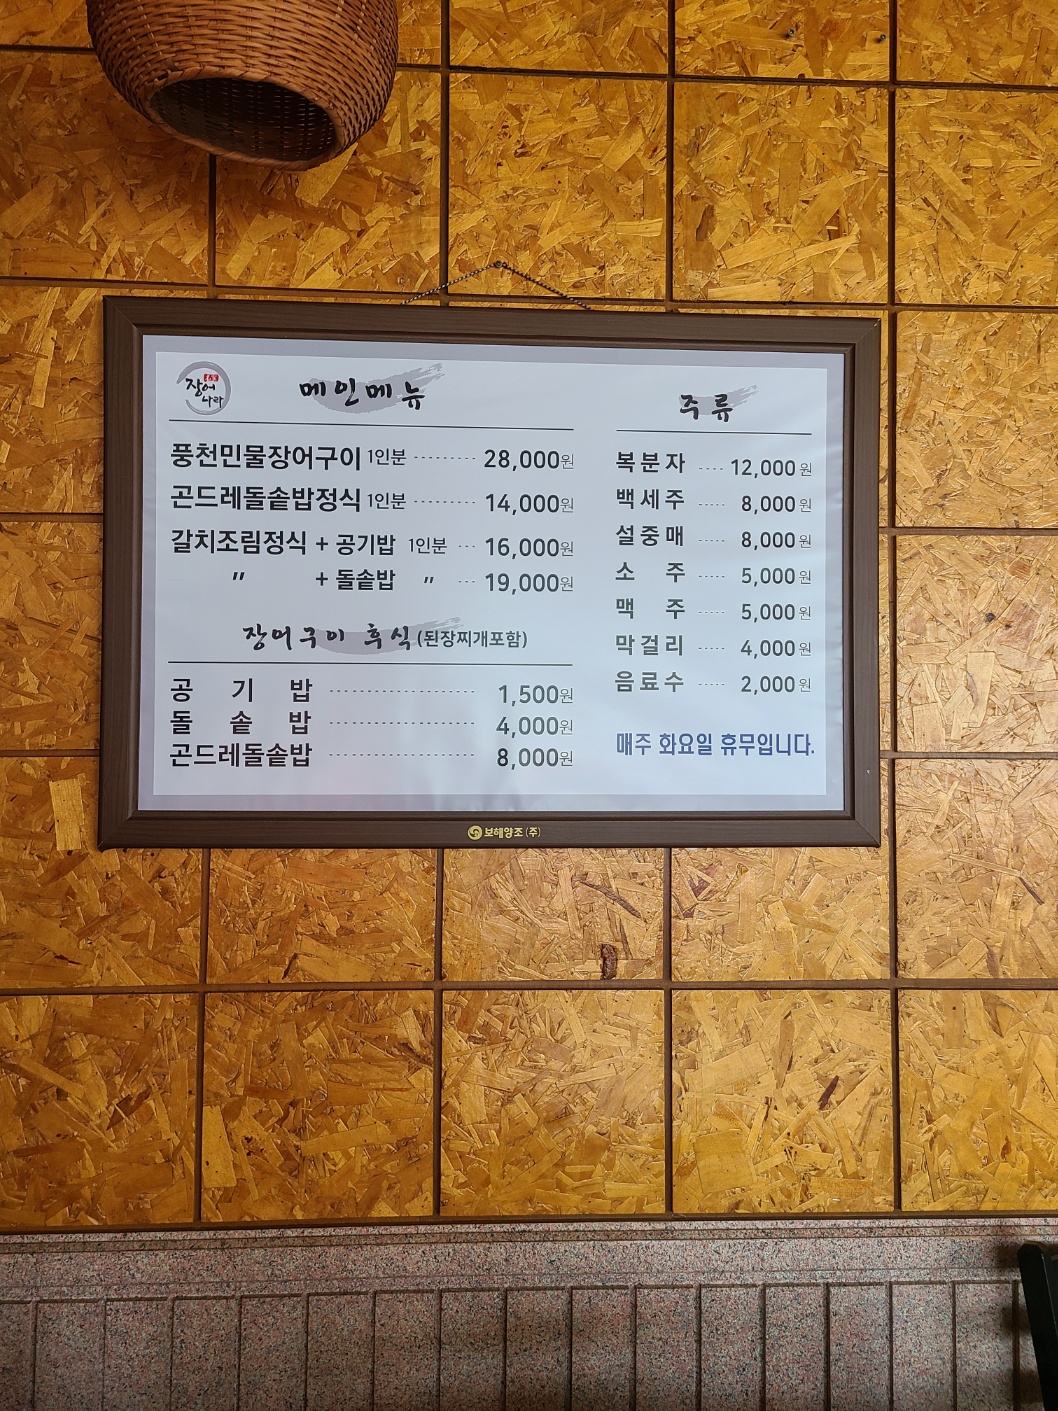 장어
나라
메인메뉴
풍천민물장어구이 1인분 --------- 28,000원
곤드레돌솥밥정식 1인분 --------- 14,000원
갈치조림정식 + 공기밥 1인분 --- 16,000원
〃 + 돌솥밥 〃 --- 19,000원
장어구이 후식 (된장찌개포함)
공 기 밥 ---------------------- 1,500원
돌 솥 밥 ---------------------- 4,000원
곤드레돌솥밥 ---------------------- 8,000원
주류
복분자 ---- 12,000원
백세주 ----- 8,000원
설중매 ----- 8,000원
소 주 ----- 5,000원
맥 주 ----- 5,000원
막걸리 ----- 4,000원
음료수 ----- 2,000원
매주 화요일 휴무입니다.
보해양조(주)